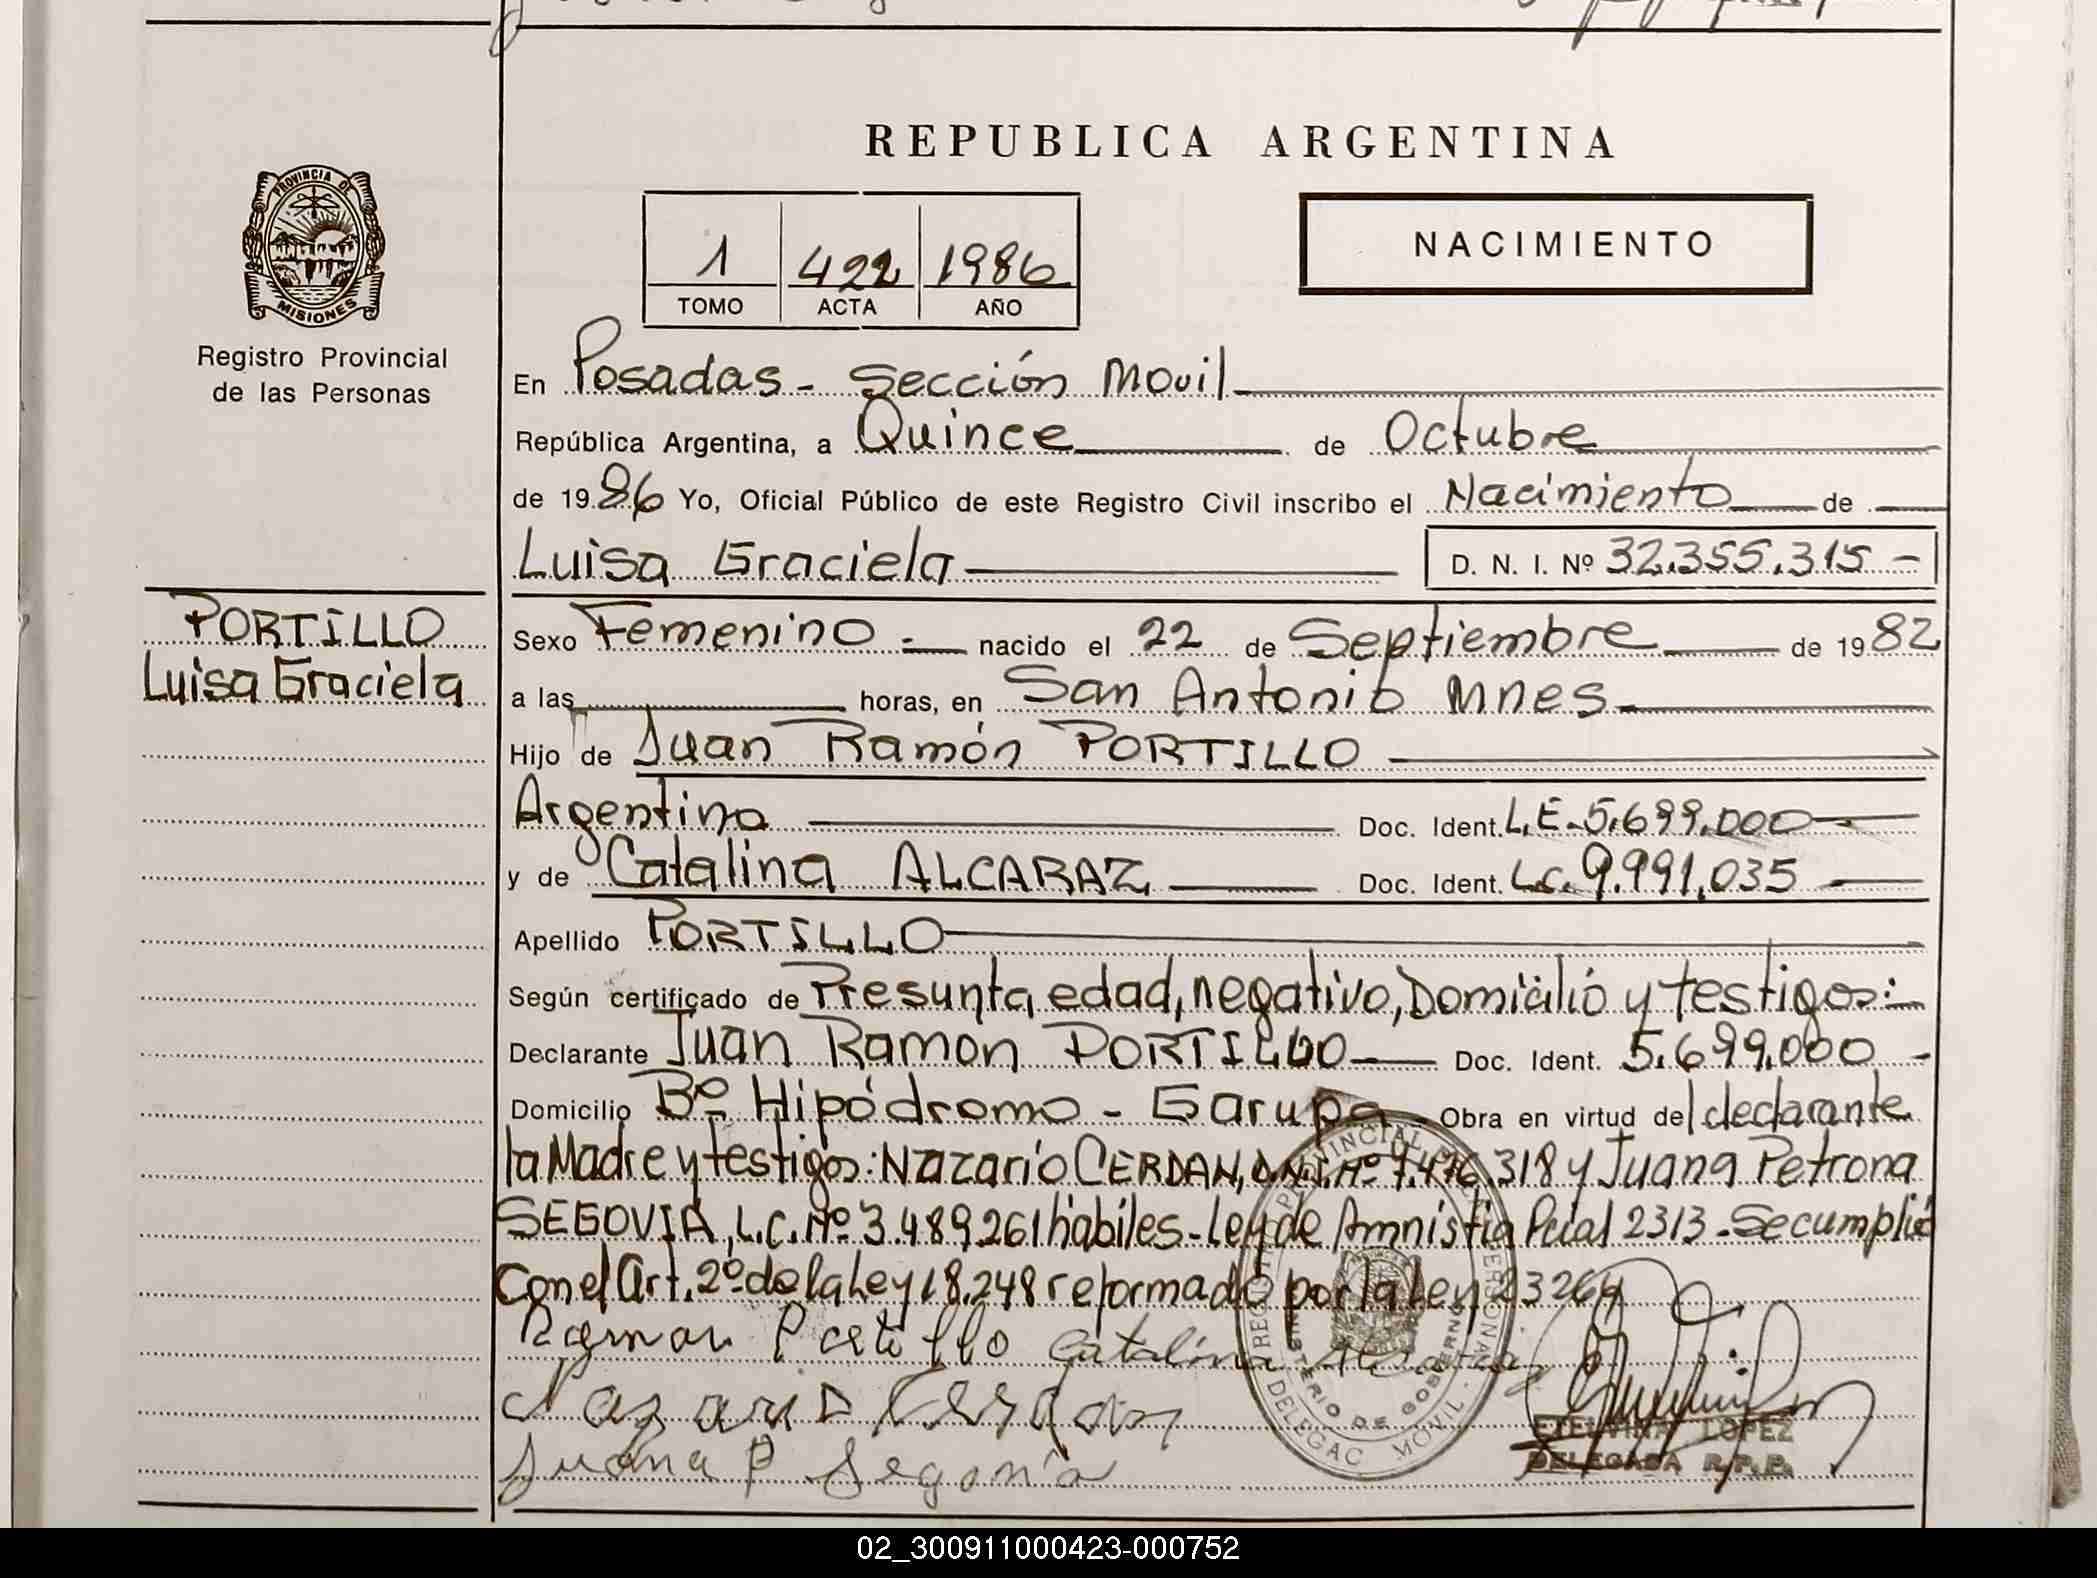 REPUBLICA ARGENTINA
PROVINCIA DE
MISIONES
Registro Provincial
de las Personas
1 422 1986
TOMO ACTA AÑO
NACIMIENTO
En Posadas - Sección Movil
República Argentina, a Quince de Octubre
de 19 86 Yo, Oficial Público de este Registro Civil inscribo el Nacimiento de
Luisa Graciela D. N. I. Nº 32.355.315 -
PORTILLO
Luisa Graciela
Sexo Femenino nacido el 22 de Septiembre de 19 82
a las horas, en San Antonio Mnes
Hijo de Juan Ramón PORTILLO
Argentino Doc. Ident. L.E. 5.699.000
y de Catalina ALCARAZ Doc. Ident. L.C. 9.991.035
Apellido PORTILLO
Según certificado de Presunta edad, negativo, Domicilio y testigos:
Declarante Juan Ramon PORTILLO Doc. Ident. 5.699.000 -
Domicilio Bº Hipódromo - Garupa Obra en virtud del declarante
la Madre y testigos: Nazario CERDAN, D.N.I. Nº 7.476.318 y Juana Petrona
SEGOVIA, L.C. Nº 3.489.261 habiles - Ley de Amnistia Pcial 2313 - Se cumplió
Con el Art. 2º de la Ley 18.248 reformado por la Ley 23264
Ramon Portillo Catalina Alcaraz
Nazario Cerdan
Juana P Segovia
ETELVINA LOPEZ
DELEGADA R.P.P.
MINISTERIO DE GOBIERNO
DELEGAC. MOVIL
02_300911000423-000752